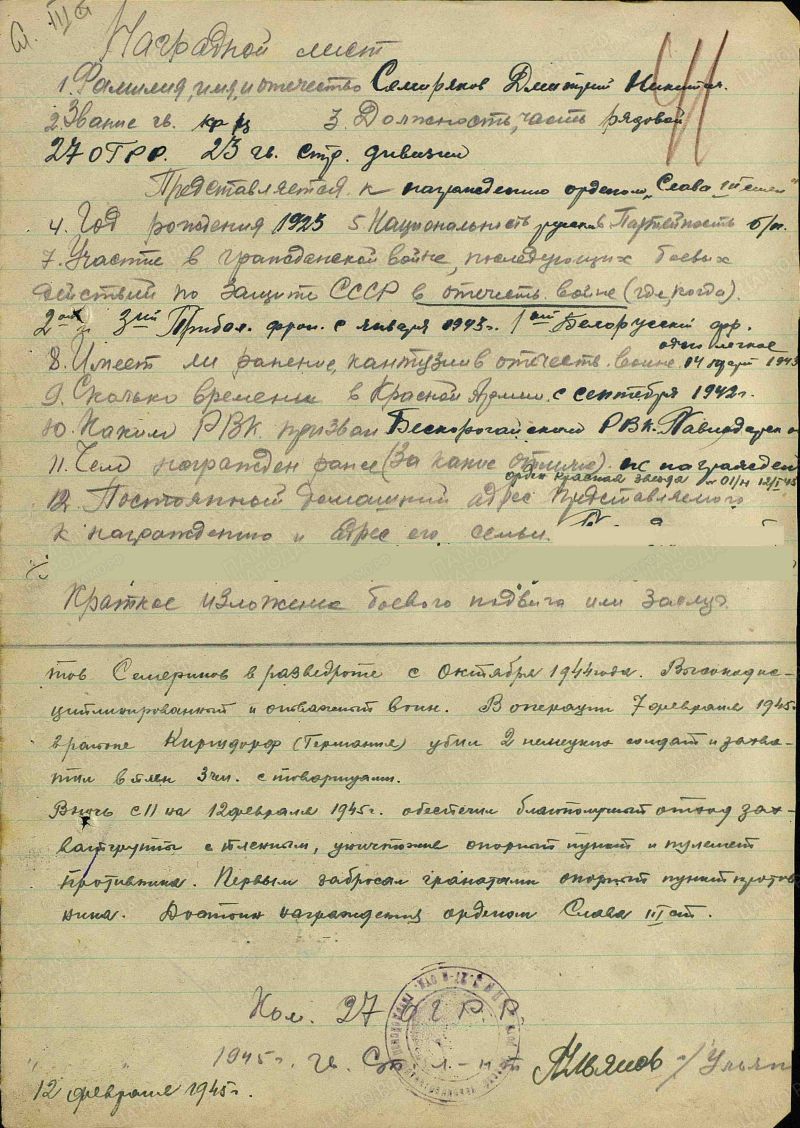 Наградной лист
1. Фамилия, имя, и отчество Семеряков Дмитрий Никитич.
2. Звание гв. кр-ц 3. Должность, часть рядовой
27 ОГРР. 23 гв. стр. дивизии
Представляется к награждению орденом "Слава III степени"
4. Год рождения 1925 5. Национальность русский Партийность б/п.
7. Участие в гражданской войне, последующих боевых
действий по защите СССР в отечеств. войне (где, когда).
2ой и 3ий Прибал. фрон. с января 1943г. 1ый Белорусский фр.
одно легкое
8. Имеет ли ранение, кантузии в отечеств. войне 14 1943
9. Сколько времени в Красной Армии. с сентября 1942г.
10. Каким РВК призван Бескарагайский РВК. Павлодарск
11. Чем награжден ранее (За какие отличия). не награжден
орден Красная звезда 01/н 12/I 45
12. Постоянной домашний адрес представляемого
к награждению и адрес его семьи.
Краткое изложение боевого подвига или заслуг
тов Семериков в разведроте с октября 1944 года. Высокодис-
циплинированный и отважный воин. В операции 7 февраля 1945г
в районе Киршдорф (Германия) убил 2 немецких солдат и захва-
тил в плен 3 чел. с товарищами.
В ночь с 11 на 12 февраля 1945г. обеспечил благополучный отход зах-
ватгруппы с пленным, уничтожив опорный пункт и пулемет
противника. Первым забросал гранатами опорный пункт против
ника. Достоин награждения орденом Слава III ст.
Ком. 27 ОГРР
1945г. гв. Ст. л-нт Ульянов /Ульян
12 февраля 1945г.